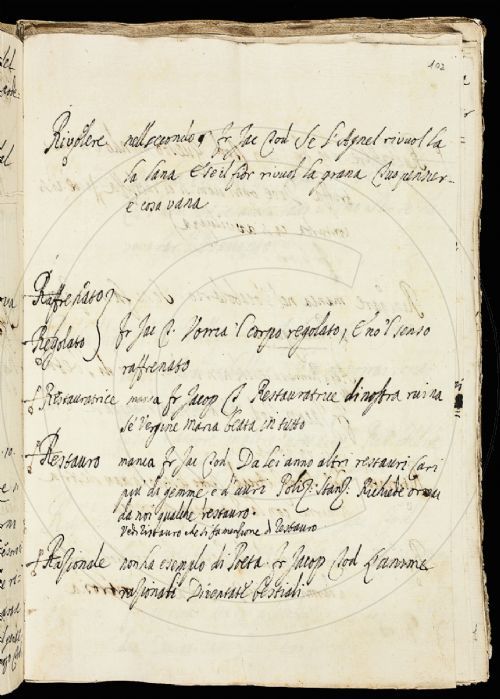 102
Rivolere nell secondo, fr Jac Tod Se l'Agnel rivuol la
la lana E se il fior rivuol la grana Tuo penser-
è cosa vana
Raffrenato
Regolato fr Jac T. Vorria 'l corpo regolato, E no 'l senso
raffrenato
Restauratrice manca fr Jacop T. Restauratrice di nostra ruina
Se' Vergine Maria beata in tutto
Restauro manca fr Jac Tod Da lei anno altri restauri Cari
più di gemme, e d'auri Poliz. Stanz. Richiede
da noi qualche restauro.
Vedi Ristauro che si fa menzione di Restauro
Razionale non ha esempio di Poeta. fr Jacop Tod L'anime
razionali Diventate bestiali